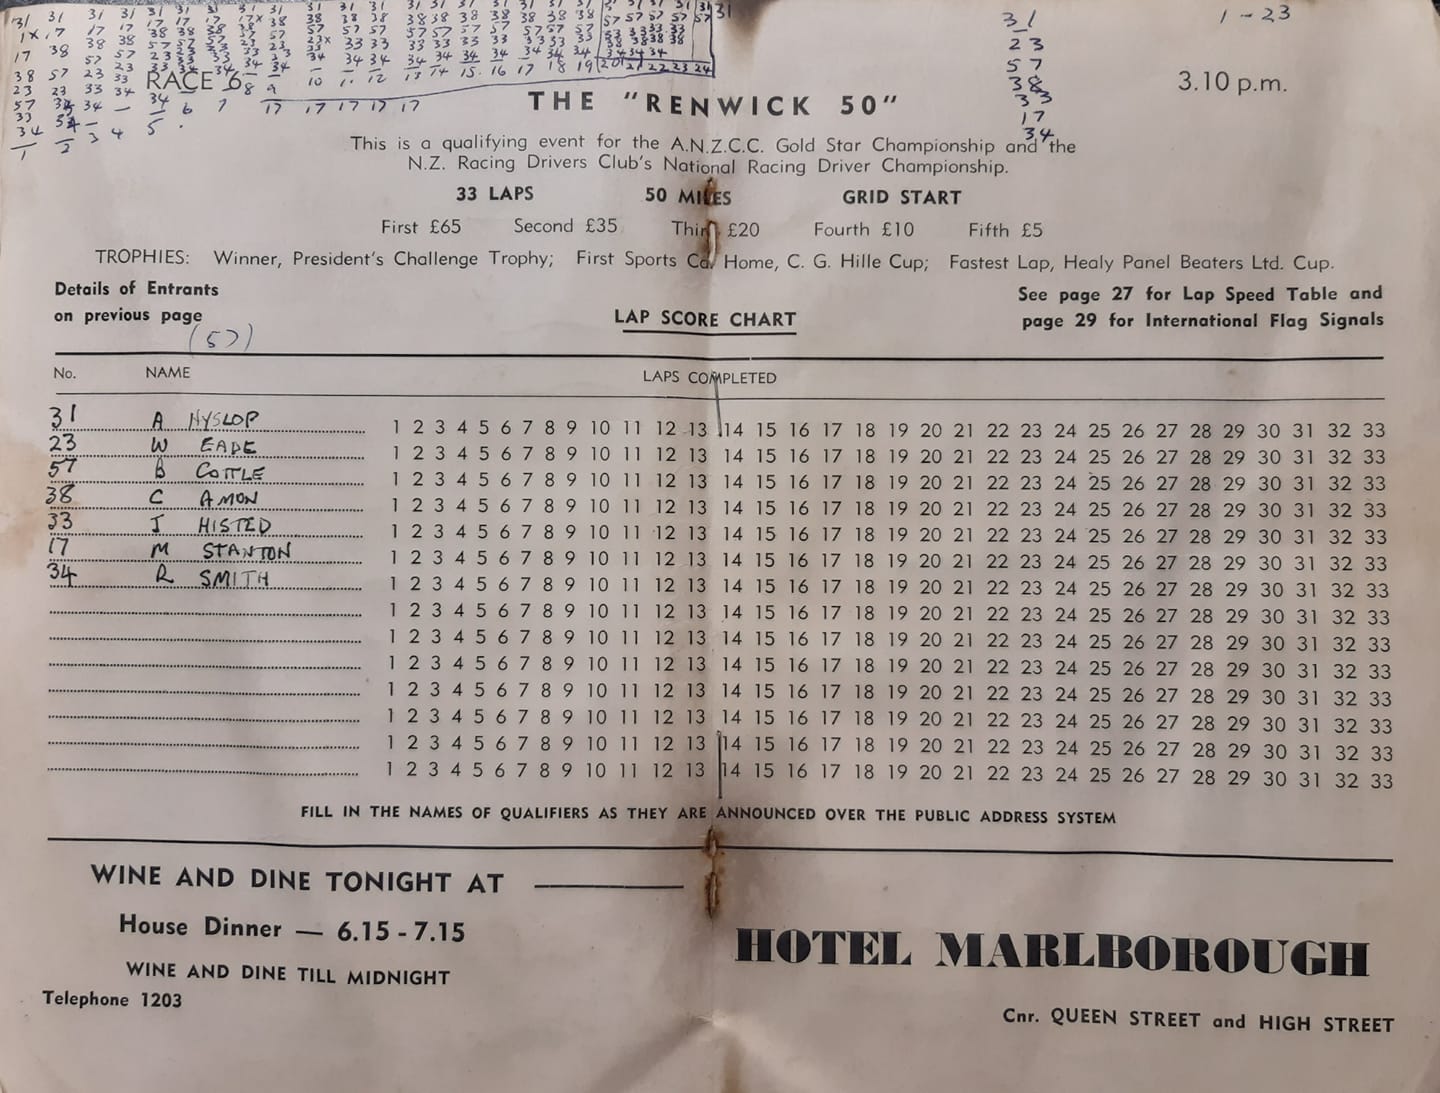 31
23
57
38
33
17
34
1 - 23
RACE 6
3.10 p.m.
THE "RENWICK 50"
This is a qualifying event for the A.N.Z.C.C. Gold Star Championship and the
N.Z. Racing Drivers Club's National Racing Driver Championship.
33 LAPS 50 MILES GRID START
First £65 Second £35 Third £20 Fourth £10 Fifth £5
TROPHIES: Winner, President's Challenge Trophy; First Sports Car Home, C. G. Hille Cup; Fastest Lap, Healy Panel Beaters Ltd. Cup.
Details of Entrants
on previous page
(57)
LAP SCORE CHART
See page 27 for Lap Speed Table and
page 29 for International Flag Signals
No. NAME LAPS COMPLETED
31 A HYSLOP 1 2 3 4 5 6 7 8 9 10 11 12 13 14 15 16 17 18 19 20 21 22 23 24 25 26 27 28 29 30 31 32 33
23 W EADE 1 2 3 4 5 6 7 8 9 10 11 12 13 14 15 16 17 18 19 20 21 22 23 24 25 26 27 28 29 30 31 32 33
57 B COTTLE 1 2 3 4 5 6 7 8 9 10 11 12 13 14 15 16 17 18 19 20 21 22 23 24 25 26 27 28 29 30 31 32 33
38 C AMON 1 2 3 4 5 6 7 8 9 10 11 12 13 14 15 16 17 18 19 20 21 22 23 24 25 26 27 28 29 30 31 32 33
33 J HISTED 1 2 3 4 5 6 7 8 9 10 11 12 13 14 15 16 17 18 19 20 21 22 23 24 25 26 27 28 29 30 31 32 33
17 M STANTON 1 2 3 4 5 6 7 8 9 10 11 12 13 14 15 16 17 18 19 20 21 22 23 24 25 26 27 28 29 30 31 32 33
34 R SMITH 1 2 3 4 5 6 7 8 9 10 11 12 13 14 15 16 17 18 19 20 21 22 23 24 25 26 27 28 29 30 31 32 33
1 2 3 4 5 6 7 8 9 10 11 12 13 14 15 16 17 18 19 20 21 22 23 24 25 26 27 28 29 30 31 32 33
1 2 3 4 5 6 7 8 9 10 11 12 13 14 15 16 17 18 19 20 21 22 23 24 25 26 27 28 29 30 31 32 33
1 2 3 4 5 6 7 8 9 10 11 12 13 14 15 16 17 18 19 20 21 22 23 24 25 26 27 28 29 30 31 32 33
1 2 3 4 5 6 7 8 9 10 11 12 13 14 15 16 17 18 19 20 21 22 23 24 25 26 27 28 29 30 31 32 33
1 2 3 4 5 6 7 8 9 10 11 12 13 14 15 16 17 18 19 20 21 22 23 24 25 26 27 28 29 30 31 32 33
1 2 3 4 5 6 7 8 9 10 11 12 13 14 15 16 17 18 19 20 21 22 23 24 25 26 27 28 29 30 31 32 33
1 2 3 4 5 6 7 8 9 10 11 12 13 14 15 16 17 18 19 20 21 22 23 24 25 26 27 28 29 30 31 32 33
FILL IN THE NAMES OF QUALIFIERS AS THEY ARE ANNOUNCED OVER THE PUBLIC ADDRESS SYSTEM
WINE AND DINE TONIGHT AT
House Dinner — 6.15 - 7.15
WINE AND DINE TILL MIDNIGHT
Telephone 1203
HOTEL MARLBOROUGH
Cnr. QUEEN STREET and HIGH STREET